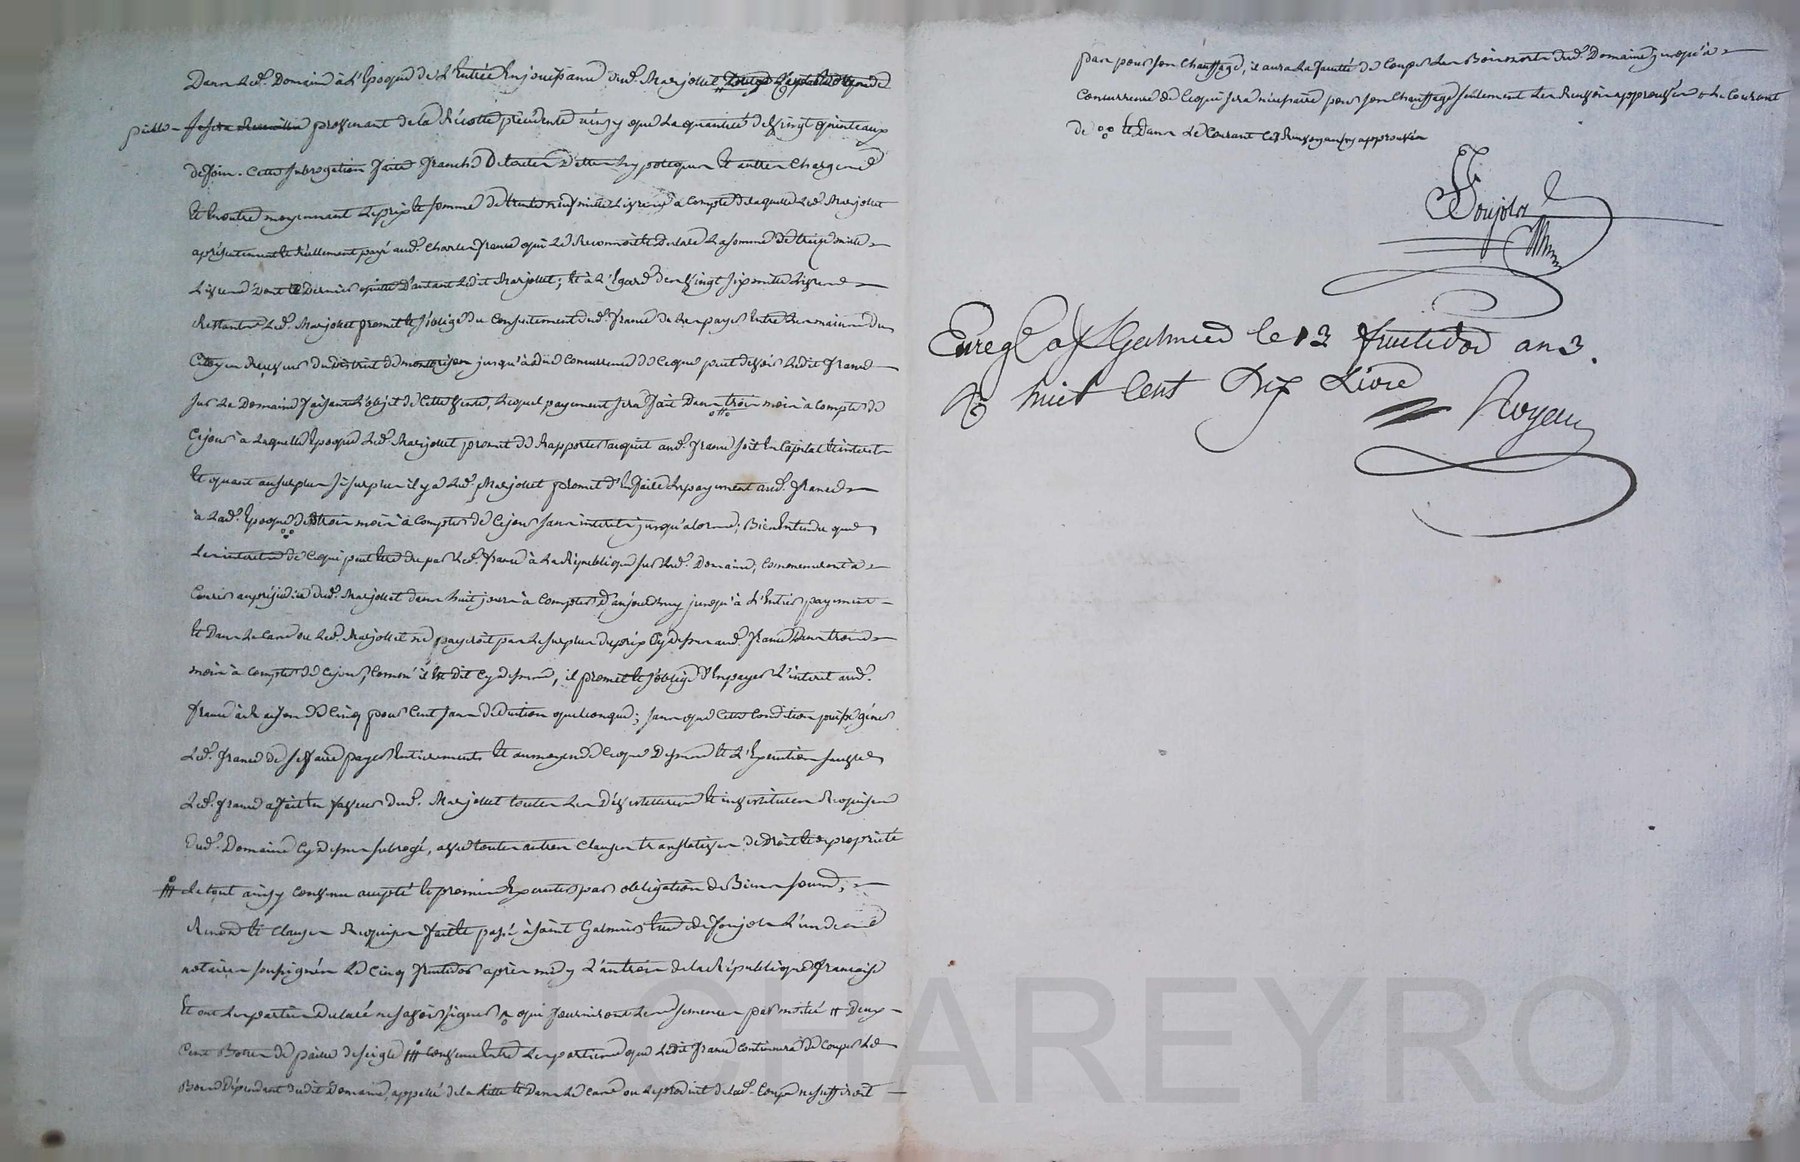 Dans led. Domaine à l'Epoque de l'Entrée En jouissance dud. Marjollet
provenant de la Récolte précédente ainsy que la quantité de vingt quinteaux
de foin. Cette subrogation faite franche de toutes dettes hypoteques et autres charges
et En outre moyennant le prix et somme de trente neuf mille Livres à compte de laquelle led. Marjollet
a présentement et réellement payé aud. Charles france qui le Reconnoit et declare la somme de treize mille
Livres dont ce dernier quitte d'autant Ledit Marjollet; et à l'Egard des vingt six mille Livres
Restantes led. Marjollet promet et s'oblige du Consentement dud. france de les payer Entre les mains du
Citoyen Receveur du District de montbrison jusqu'à dûe Concurrence de ce que peut devoir Ledit france
sur le Domaine faisant l'objet de cette vente, Lequel payement sera fait dans trois mois à compter de
Ce jour à laquelle Epoque led. Marjollet promet de Rapporter acquit aud. france soit En Capital et interets
et quant au surplus si surplus il y a led. Marjollet promet d'En faire le payement aud. france
à Lad. Epoque de trois mois à compter de ce jour sans interets jusqu'alors; Bien Entendu que
Les interets de ce qui peut être du par led. france à la République sur led. Domaine, commenceront à
Courir au préjudice dud. Marjollet dans huit jours à compter d'aujourd'huy jusqu'à l'Entier payement
et Dans le cas ou led. Marjollet ne payeroit pas le surplus du prix cy dessus aud. france dans trois
mois à compter de ce jour, comm' il Est dit cy dessus, il promet et s'oblige d'En payer l'interet aud.
france à Raison de cinq pour cent sans deduction quelconque; sans que cette condition puisse gêner
Led. france de se faire payer Entierement et au moyen de ce que dessus et l'Execution sauve
Led. france a fait En faveur dud. Marjollet toutes les Dévestitures et investitures Requises
dud. Domaine cy dessus subrogé, avec toutes autres clauses translatives de droit et de propriété
Le tout ainsy convenu accepté et promis Executer par obligation de Biens soum.
Renon. et clauses Requises fait et passé à Saint Galmier Etude de Poujols L'un des
notaires soussignés Le cinq fructidor après midy l'an trois de la République française
et ont les parties declaré ne savoir signer qui fourniront les semences par moitié # Deux
Cent Bottes de paille de seigle convenu Entre les parties que Ledit france continuera de couper Le
Bois dépendant dudit Domaine, appellé de la et Dans le cas ou le produit de lad. Coupe ne suffiroit
pas pour son chauffage, il aura la faculté de couper les Bois morts dud. Domaine jusqu'à
Concurrence de ce qui sera nécessaire pour son chauffage seulement Les Renvois approuvés Le Courant
de et Dans Le Courant Ces Renvoys aussy approuvés
Poujols
Enreg. à St Galmier le 13 fructidor an 3.
R. huit Cent dix Livre
Royeu
CHAREYRON